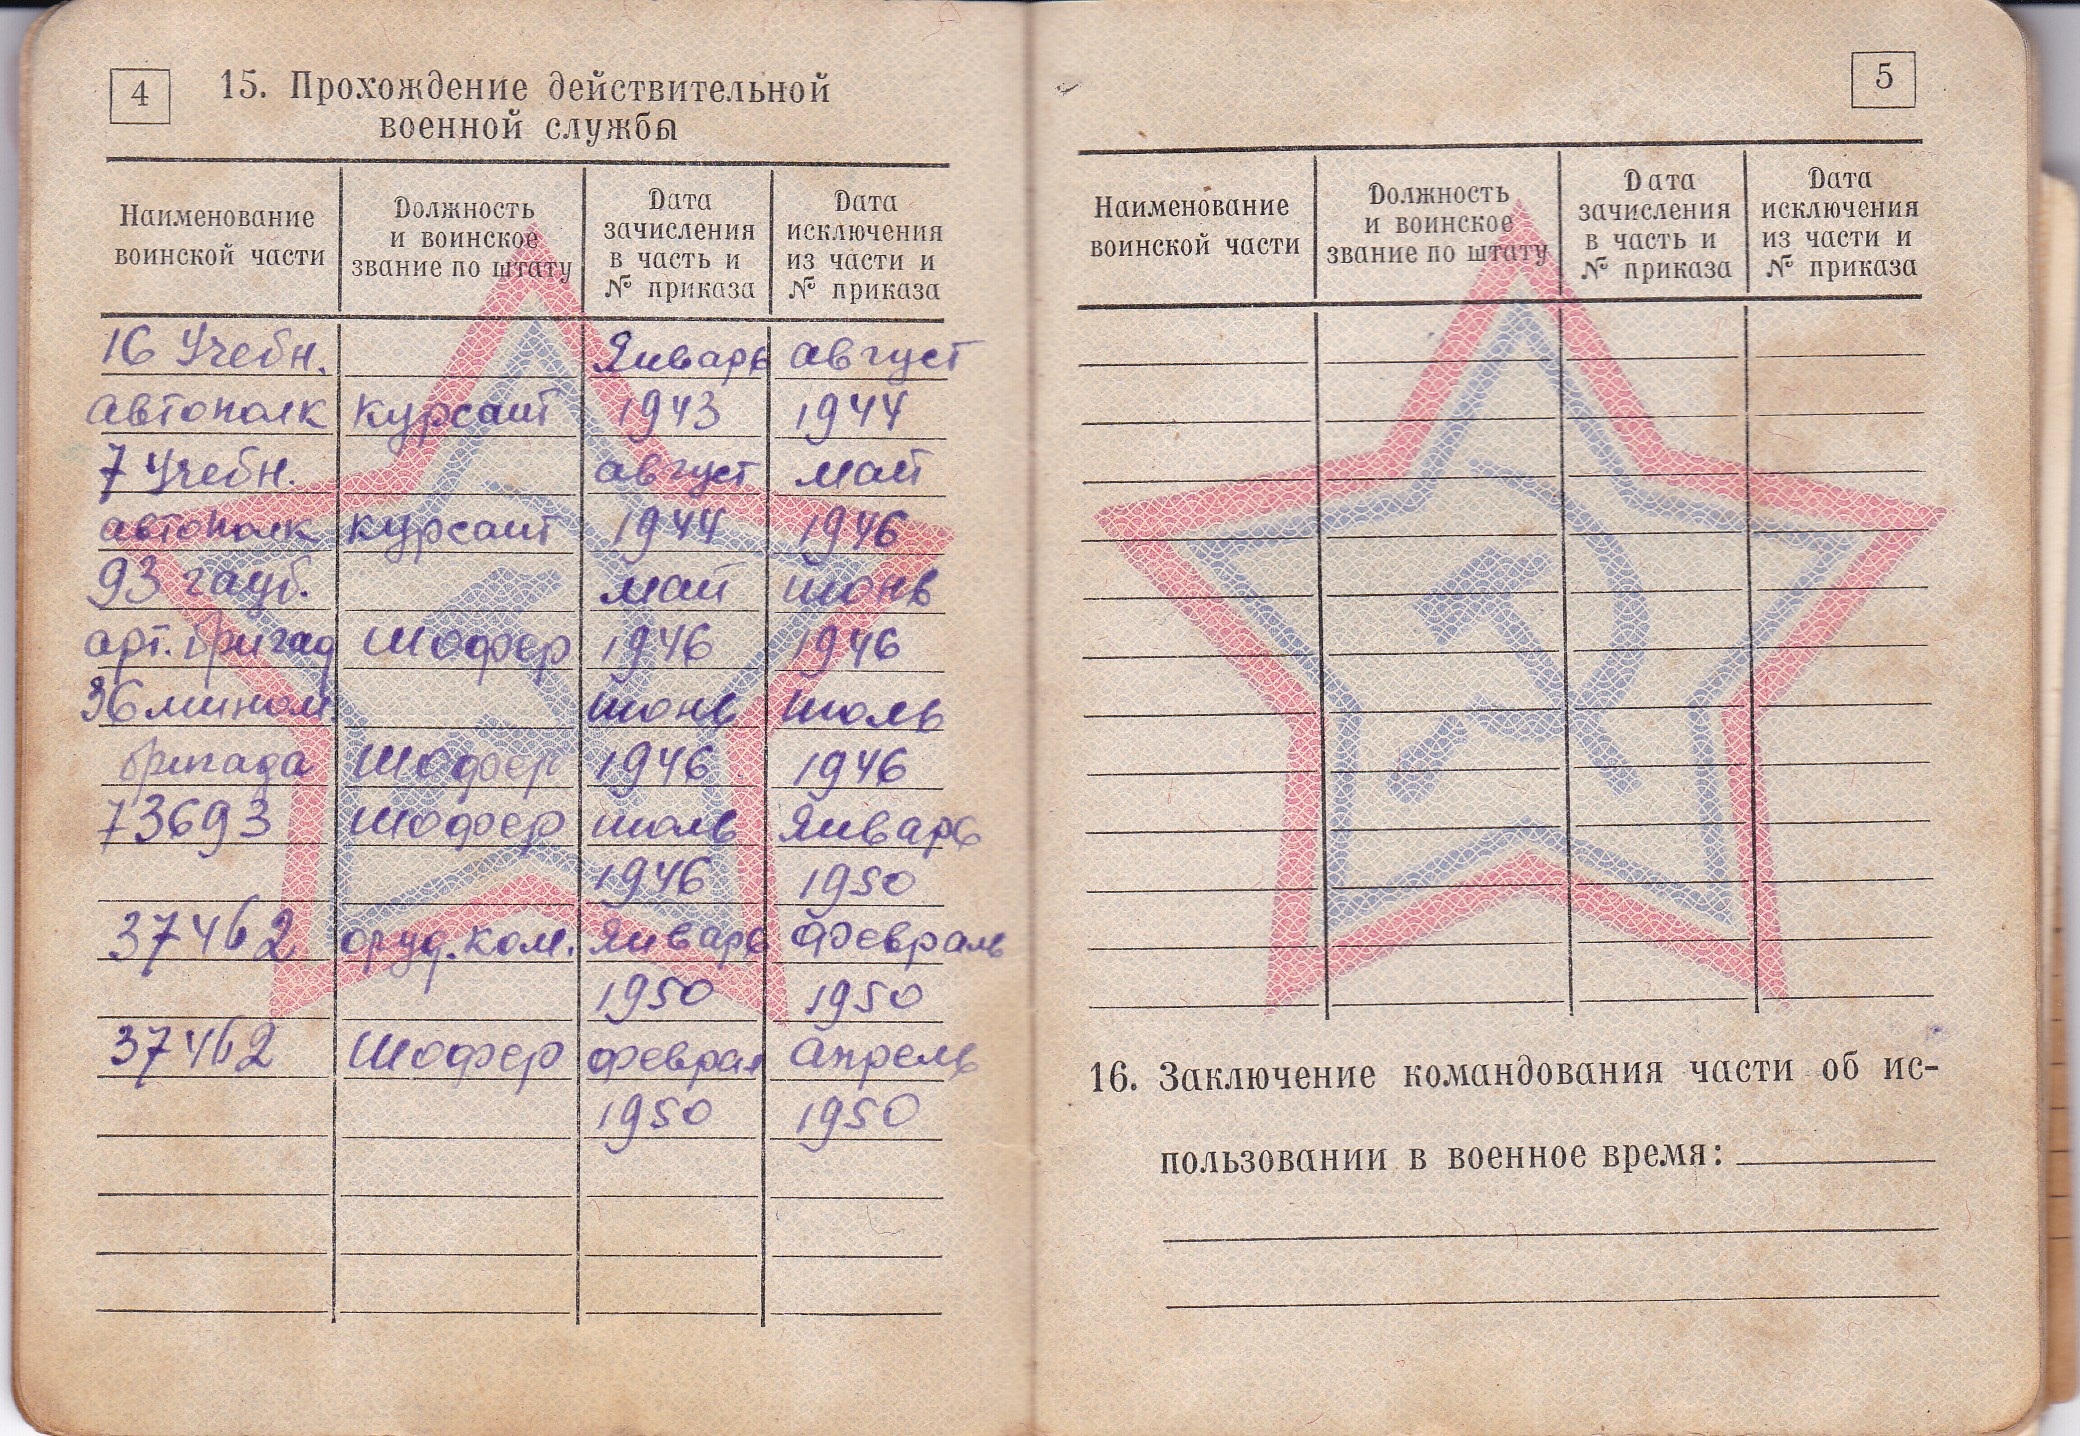 4
15. Прохождение действительной
военной службы
Наименование воинской части
Должность и воинское звание по штату
Дата зачисления в часть и № приказа
Дата исключения из части и № приказа
16 Учебн. Январь август
автополк курсант 1943 1944
7 Учебн. август май
автополк курсант 1944 1946
93 гауб. май июнь
арт. бригад Шофер 1946 1946
36 мином. июнь июль
бригада Шофер 1946 1946
73693 Шофер июль Январь
1946 1950
37462 оруд. ком. Январь Февраль
1950 1950
37462 Шофер феврал Апрель
1950 1950
5
Наименование воинской части
Должность и воинское звание по штату
Дата зачисления в часть и № приказа
Дата исключения из части и № приказа
16. Заключение командования части об ис-
пользовании в военное время: